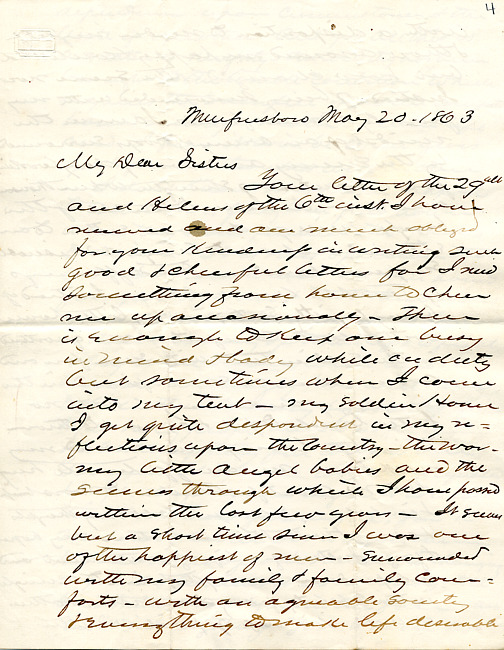 4
Murfreesboro May 20-1863
My Dear Sisters
Your letter of the 29th
and Helens of the 6th inst. I have
received and am much obliged
for your kindness in writing such
good & cheerful letters for I need
something from home to cheer
me up occasionally - There
is enough to keep one busy
in mind & body while on duty
but sometimes when I come
into my tent - my Soldier Home
I get quite despondent in my re=
flections upon the Country - the war -
my little angel babies and the
scenes through which I have passed
within the last few years - It seems
but a short time since I was one
of the happiest of men - surrounded
with my family & family com-
forts - with an agreable society
& everything to make life desirable